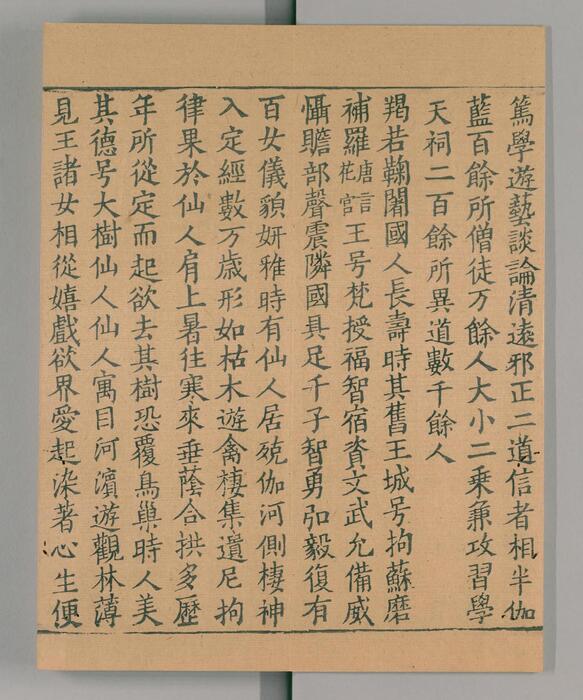 篤學遊藝談論清遠邪正二道信者相半伽
藍百餘所僧徒万餘人大小二乘兼攻習學
天祠二百餘所異道數千餘人
羯若鞠闍國人長壽時其舊王城号拘蘇磨
補羅唐言花宮王号梵授福智宿資文武允備威
懾贍部聲震隣國具足千子智勇弘毅復有
百女儀貌妍雅時有仙人居殑伽河側棲神
入定經數万歲形如枯木遊禽棲集遺尼拘
律果於仙人肩上暑往寒來垂蔭合拱多歷
年所從定而起欲去其樹恐覆鳥巢時人美
其德号大樹仙人仙人寓目河濱遊觀林薄
見王諸女相從嬉戲欲界愛起染著心生便